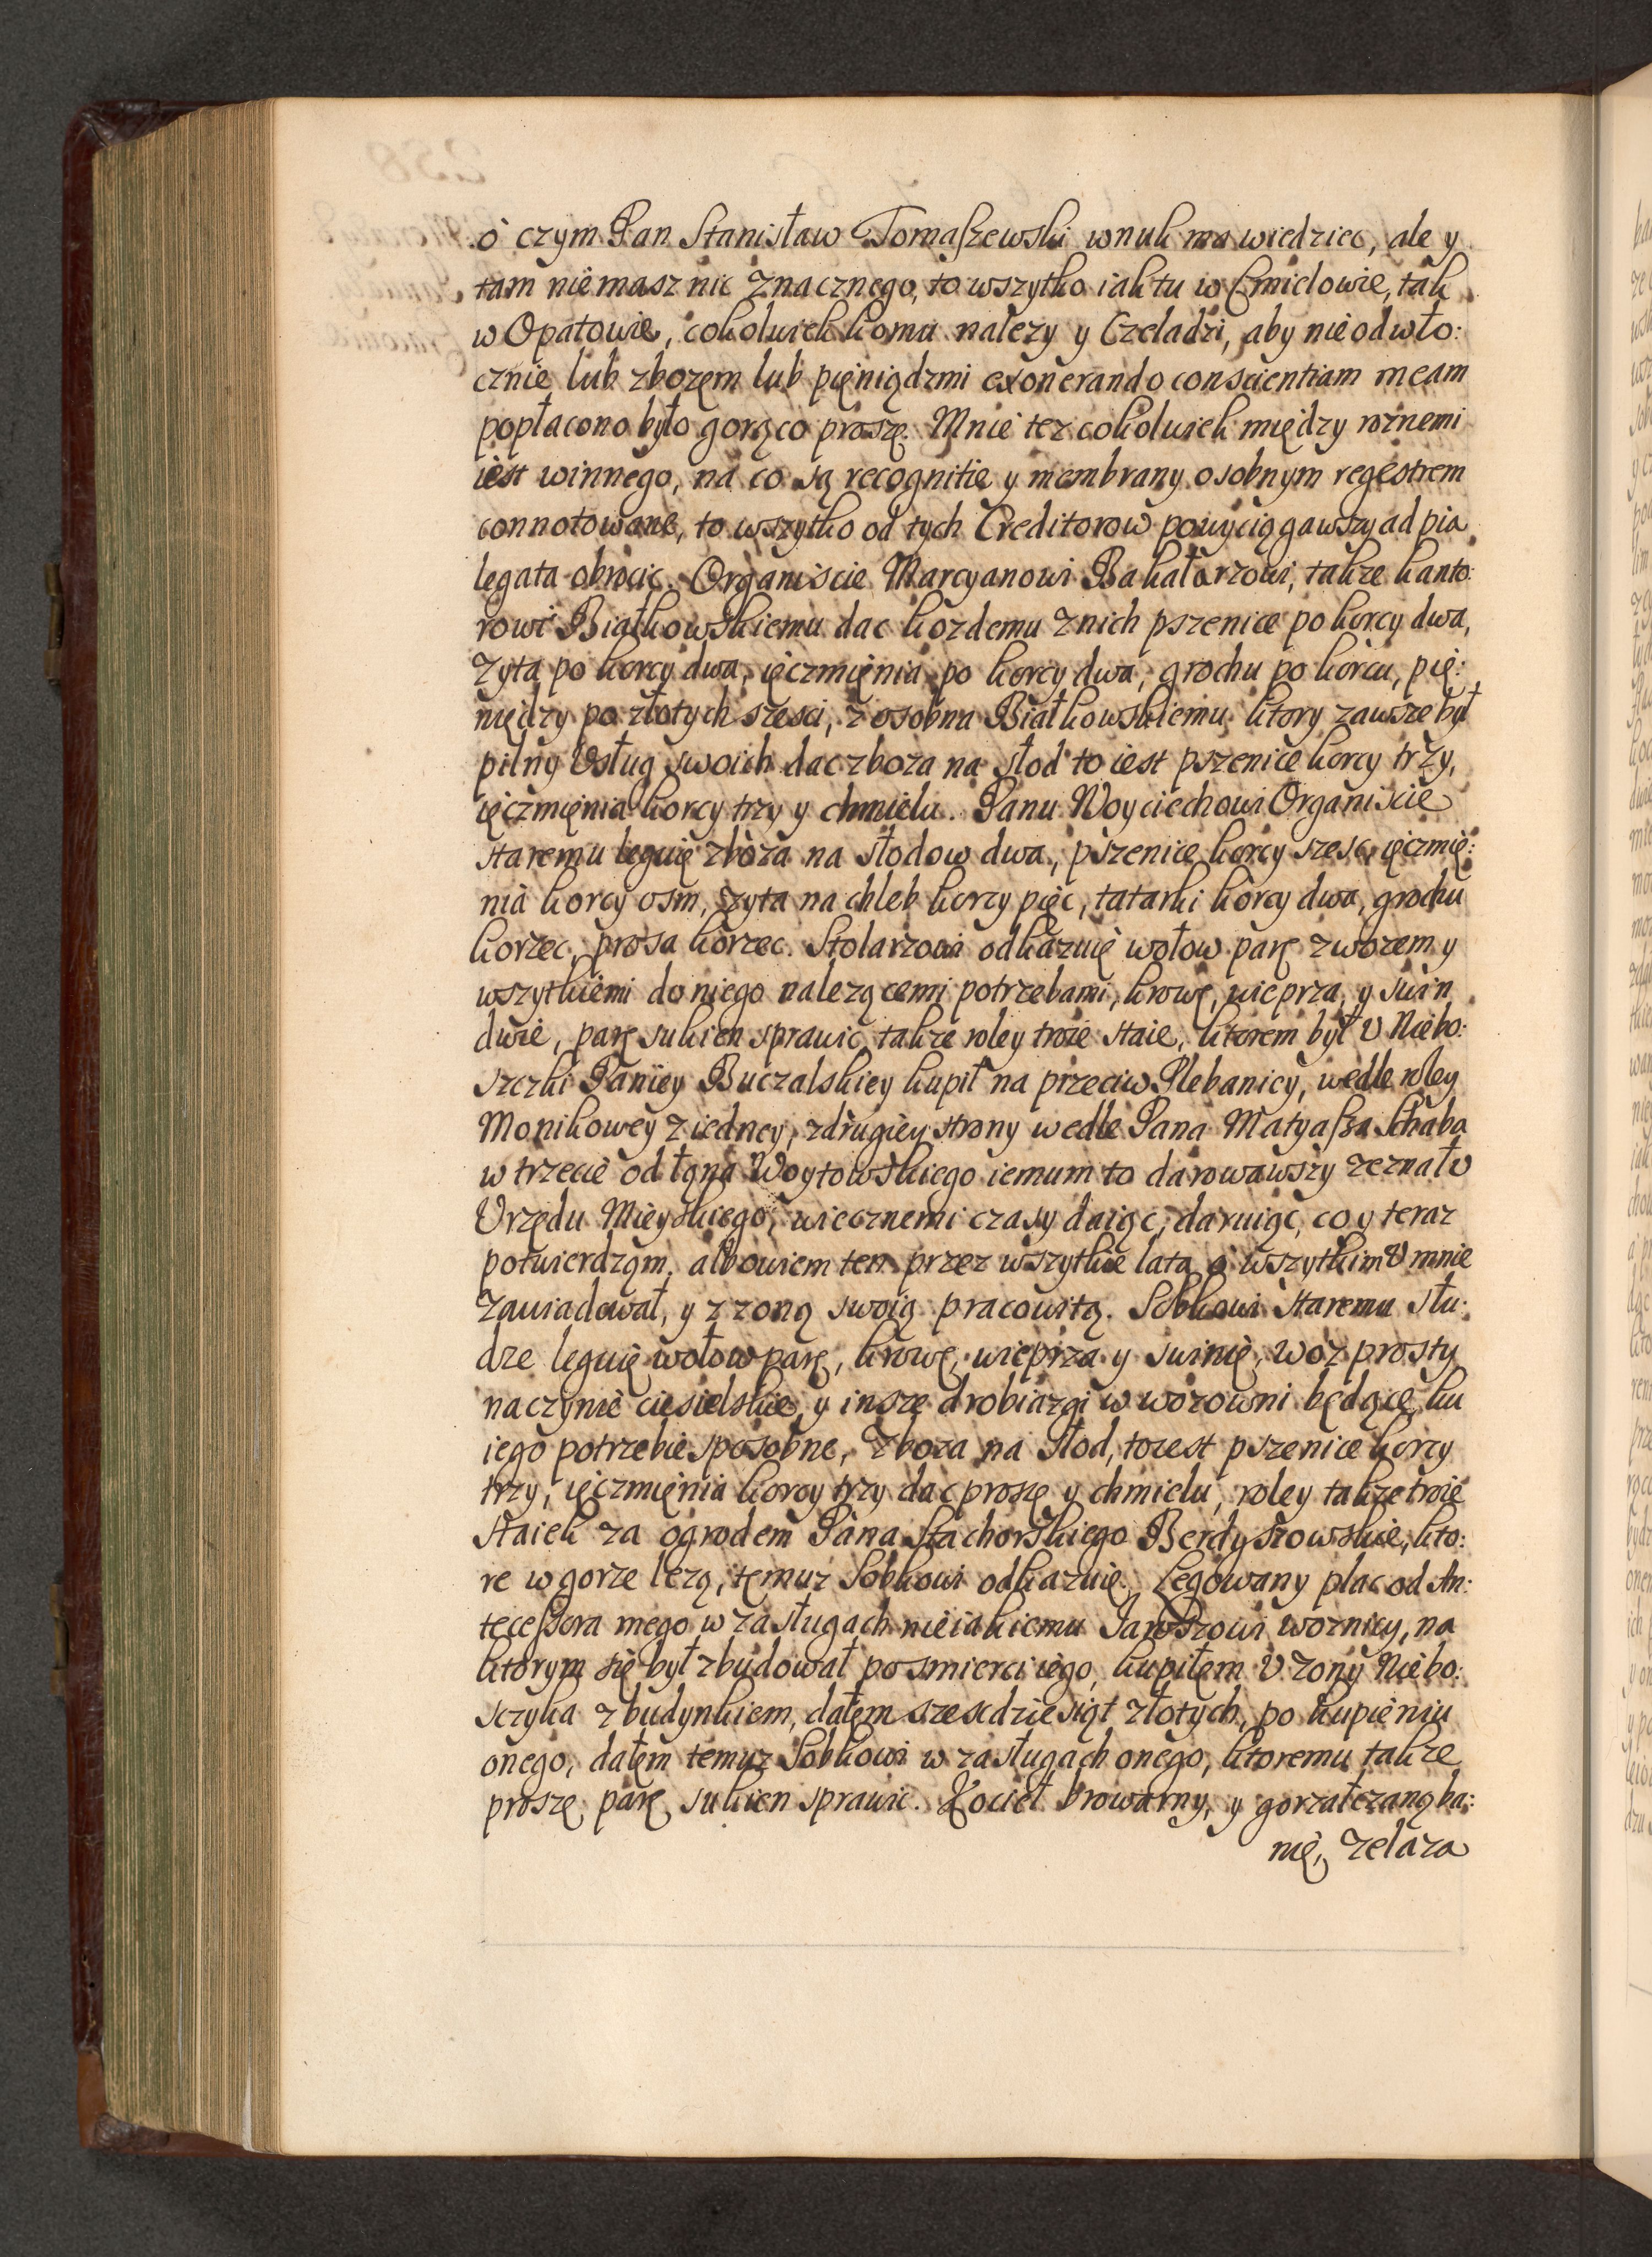 o czym Pan Stanisław Tomaszewski wnuk ma wiedziec, ale y
tam niemasz nic znacznego, to wszytko iak tu w Cmielowie, tak
w Opatowie, cokolwiek komu nalezy y Czeladzi, aby nieodwło:
cznie lub zbozem lub pięniądzmi exonerando conscientiam meam
popłacono było gorąco proszę. Mnie tez cokolwiek między roznemi
iest winnego, na co są recognitie y membrany osobnym regestrem
connotowane, to wszytko od tych Creditorow powyciągawszy ad pia
legata obrocic. Organiscie Marcyanowi Bakałarzowi, takze kanto:
rowi Białkowskiemu dac kozdemu z nich pszenice po korcy dwa,
zyta po korcy dwa, ięczmięnia po korcy dwa, grochu po korcu, pię:
niędzy po złotych szesci, z osobna Białkowskiemu ktory zawsze był
pilny Usług swoich dac zboza na słod to iest pszenice korcy trzy,
ięczmięnia korcy trzy y chmielu. Panu Woyciechowi Organiscie
staremu leguię zboza na słodow dwa, pszenice korcy szesc, ięczmię:
nia korcy osm, zyta na chleb korcy pięc, tatarki korcy dwa, grochu
korzec, prosa korzec. Stolarzowi odkazuię wołow parę z wozem y
wszytkiemi do niego nalezącemi potrzebami, krowę, wieprza, y swin
dwie, parę sukien sprawic, takze roley troie staie, ktorem był v Niebo:
szczki Paniey Buczalskiey kupił na przeciw Plebanicy, wedle roley
Monikowey z iedney, z drugiey strony wedle Pana Matyasza Schaba
w trzecie od łąna Woytowskiego iemum to darowawszy zeznał v
Vrzędu Mieyskiego, wiecznemi czasy daiąc, daruiąc, co y teraz
potwierdząm, albowiem ten przez wszytkie lata o wszytkim V mnie
zawiadował, y z zoną swoią pracowitą. Sobkowi staremu słu:
dze leguię wołow parę, krowę, wieprza y swinię, woz prosty
naczynie ciesielskie, y insze drobiazgi w wozowni będące, ku
iego potrzebie sposobne, zboza na słod, to iest pszenice korcy
trzy, ięczmięnia korcy trzy dac proszę y chmielu, roley takze troie
staiek za ogrodem Pana Stachorskiego Berdyszowskie, kto:
re w gorze lezą, temuz Sobkowi odkazuię. Legowany plac od An:
tecessora mego w zasługach nieiakiemu Jaroszowi woznicy, na
ktorym się był zbudował po smierci iego, kupiłem V zony Niebo:
szczyka z budynkiem, dałem szescdziesiąt złotych, po kupieniu
onego, dałem temuz Sobkowi w zasługach onego, ktoremu takze
proszę parę sukien sprawic. Kocieł browarny, y gorzałczaną ba:
nię, zelaza